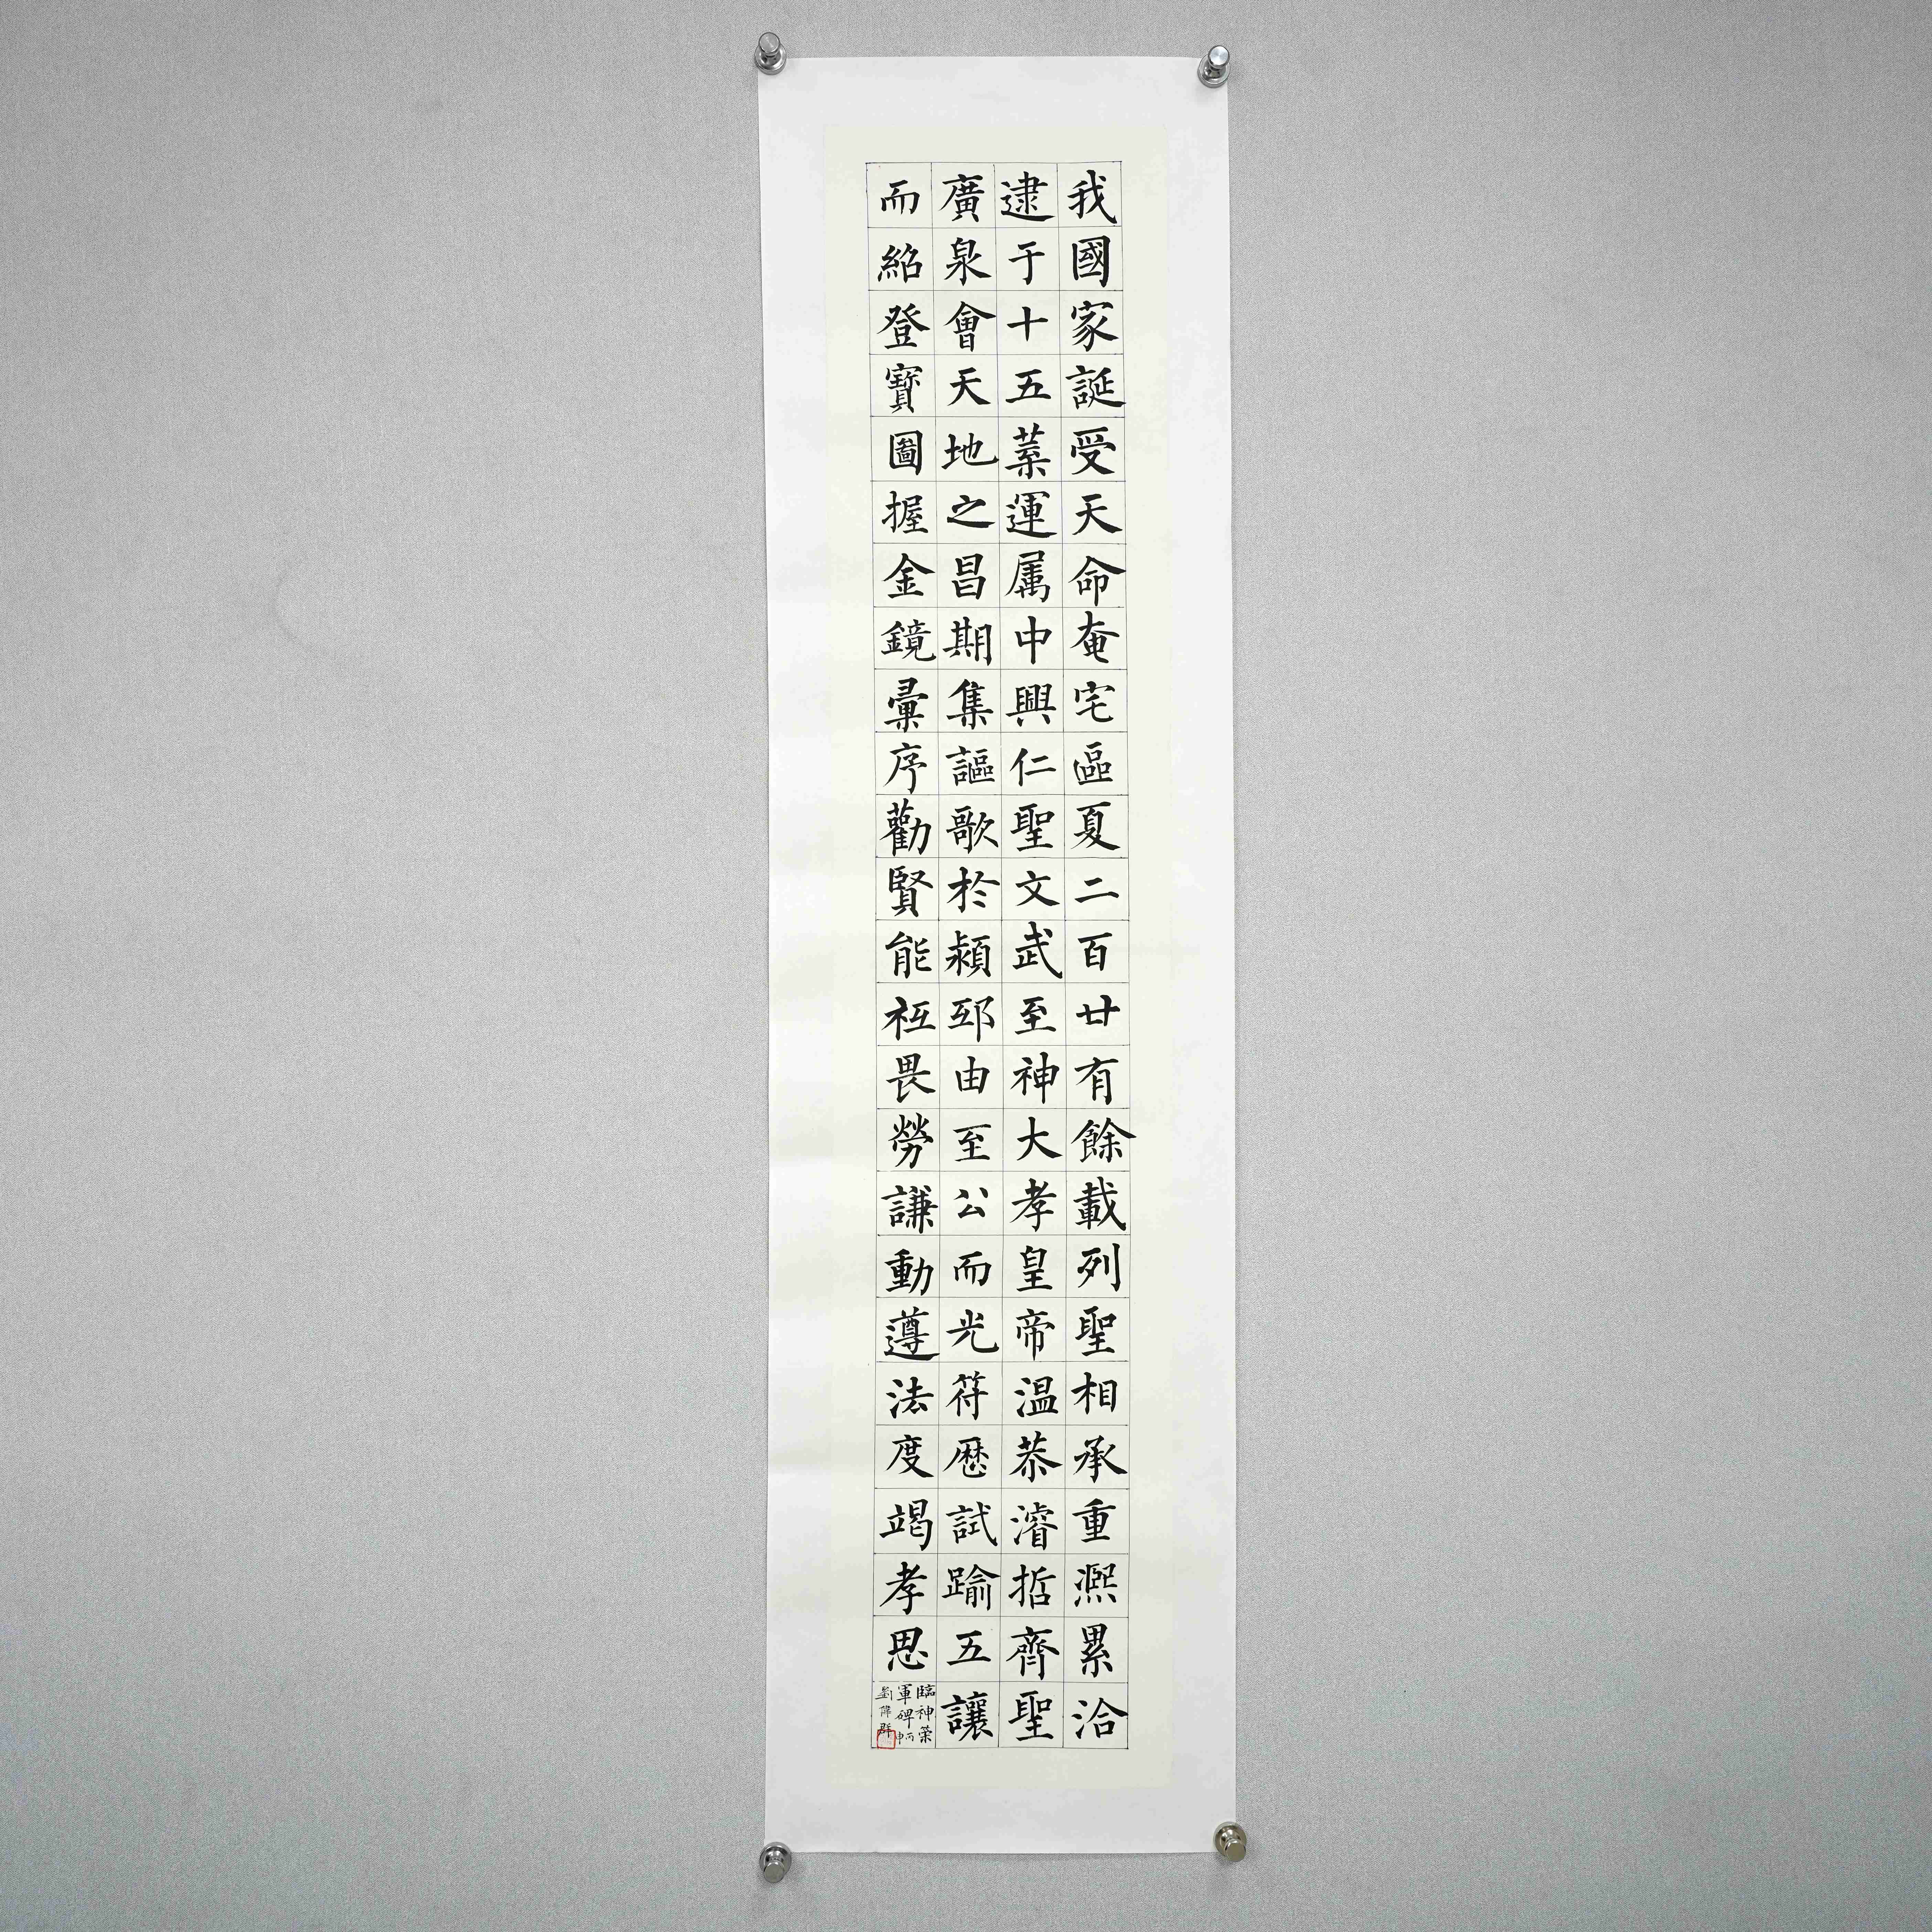 我國家誕受天命奄宅區夏二百廿有餘載列聖相承重熈累洽
逮于十五葉運属中興仁聖文武至神大孝皇帝温恭濬哲齊聖
廣泉會天地之昌期集謳歌於潁邸由至公而光符歷試踰五讓
而紹登寶圖握金鏡彙序勸賢能祗畏勞謙動遵法度竭孝思
臨神策
軍碑丙申
劉群